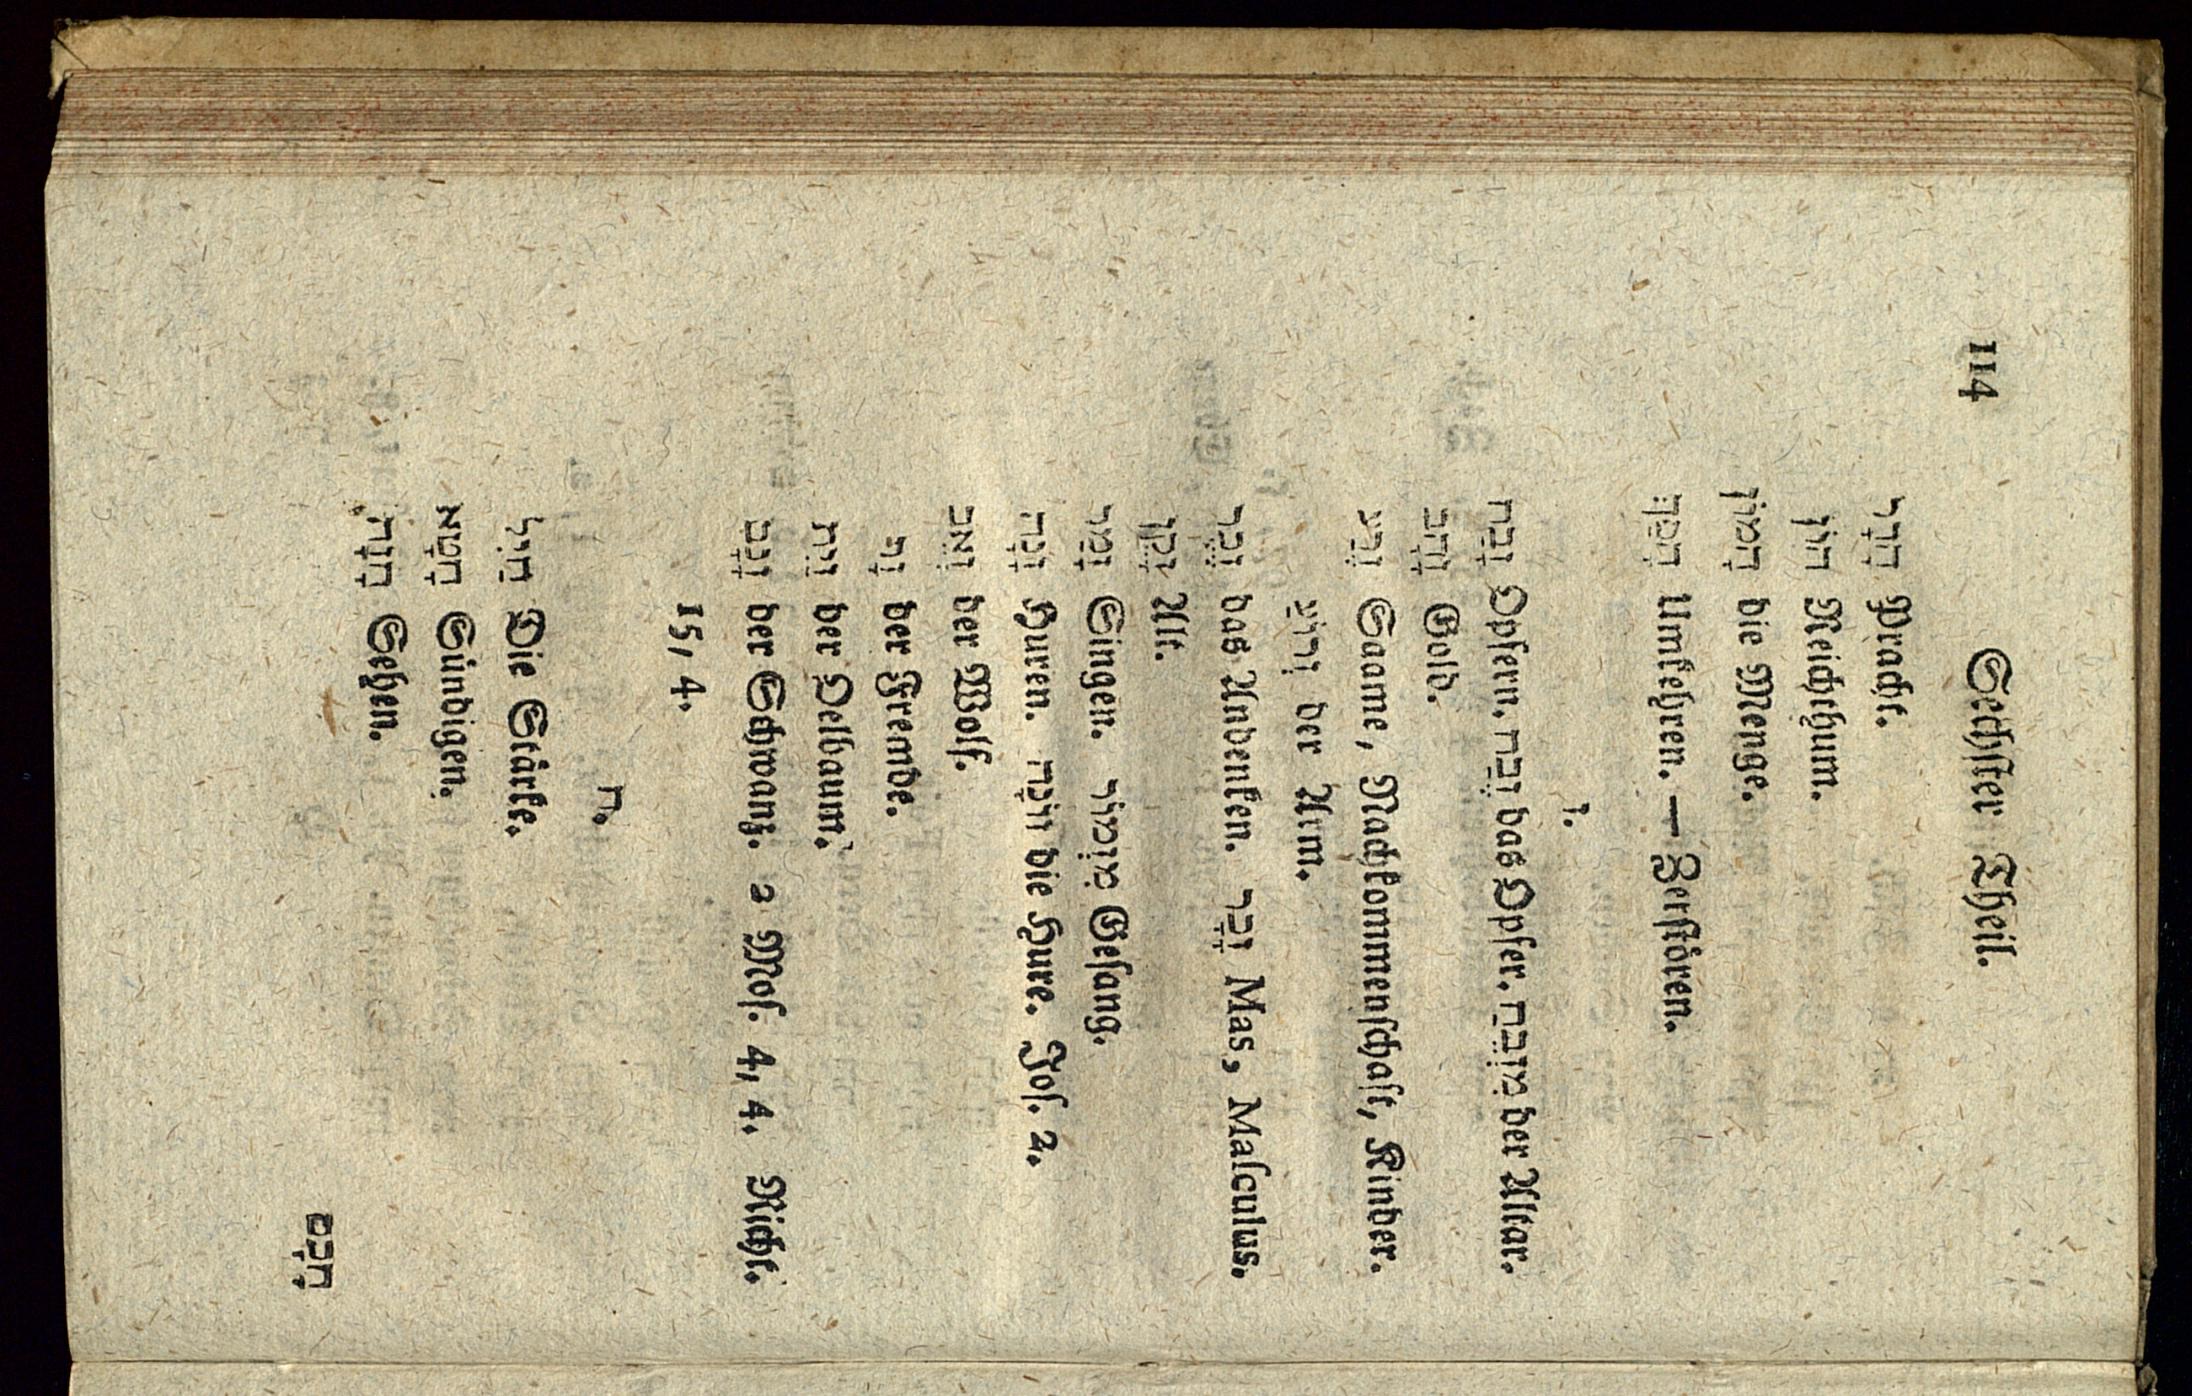 114 Sechſter Theil.
הָדָר Pracht.
הוֹן Reichthum.
הָמוֹן die Menge.
הָפַךְ Umkehren. — Zerſtören.
ז.
זָבַח Opfern. זֶבַח das Opfer. מִזְבֵּחַ der Altar.
זָהָב Gold.
זֶרַע Saame, Nachkommenſchaft, Kinder.
זְרוֹעַ der Arm.
זֵכֶר das Andenken. זָכָר Mas, Maſculus.
זָקֵן Alt.
זָמַר Singen. מִזְמוֹר Geſang.
זָנָה Huren. זוֹנָה die Hure. Joſ. 2.
זְאֵב der Wolf.
זָר der Fremde.
זַיִת der Oelbaum.
זָנָב der Schwanz. 2 Moſ. 4, 4. Richt.
15, 4.
ח.
חַיִל Die Stärke.
חָטָא Sündigen.
חָזָה Sehen.
חָכַם